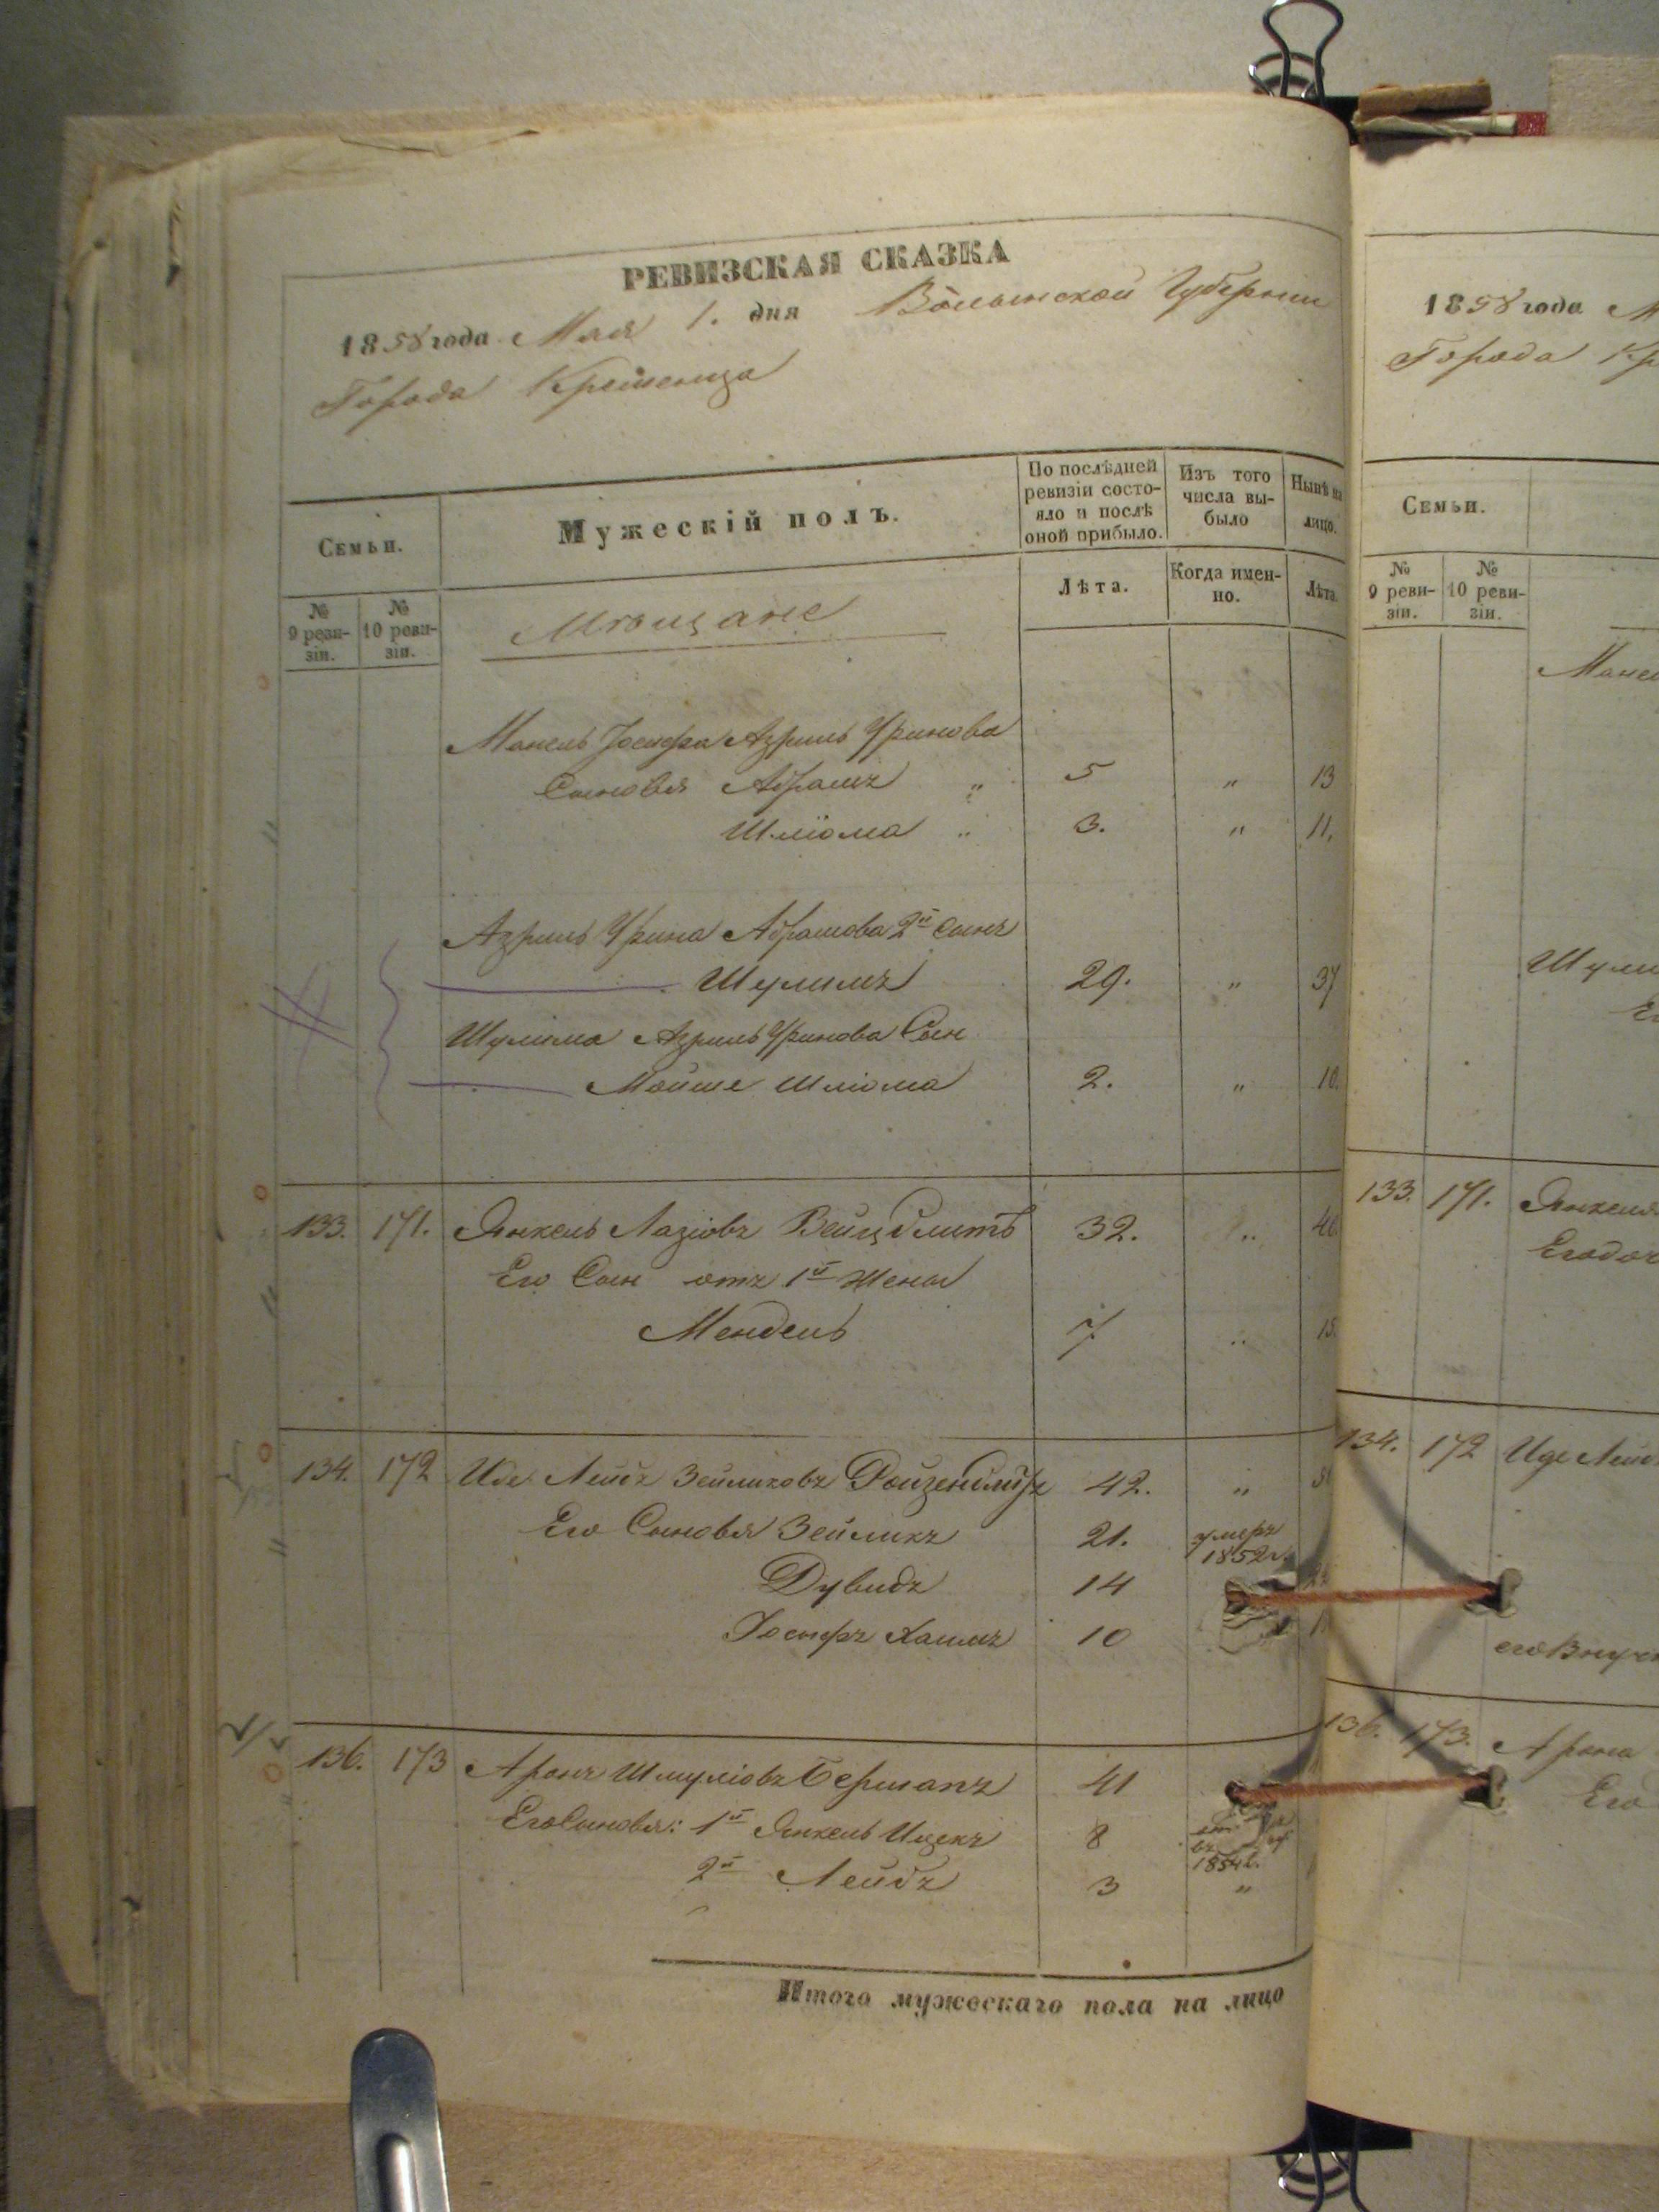 РЕВИЗСКАЯ СКАЗКА
1858 года Мая 1. дня Волынской Губернии
Города Кременца
Семьи.
Мужескій полъ.
По послѣдней ревизіи состо-
яло и послѣ оной прибыло.
Изъ того числа вы-
было
Нынѣ на лицо.
№ 9 реви-
зіи.
№ 10 реви-
зіи.
Мѣщане
Лѣта.
Когда имен-
но.
Лѣта.
Манель Іосифа Азриль Фринова
Сыновья Абрамъ " 5 " 13
Шліома " 3. " 11.
Азриль Фрина Абрамова 2й Сынъ
Шулимъ 29. " 37
Шулима Азриль Фринова Сын
Мойше Шліома 2. " 10.
133. 171. Янкель Лазіовъ 32. " 40.
Его Сын отъ 1й Жены
Мендель 7. " 15.
134. 172 Иде Лейбъ Зейликовъ 42. "
Его Сыновья Зейликъ 21. умеръ 1852г.
Дувидъ 14
Іосифъ Хаимъ 10
136. 173 Аронъ Шмуліовъ Берманъ 41
Его Сыновья: 1й Янкель Ицекъ 8 въ 1854г.
2й Лейбъ 3 "
Итого мужескаго пола на лицо
1858 года М
Города Кр
Семьи.
№ 9 реви-
зіи.
№ 10 реви-
зіи.
Манел
Шули
133. 171. Янкеля
Его доч
134. 172 Иде Лейб
его Внуч
136. 173. Арона
Его